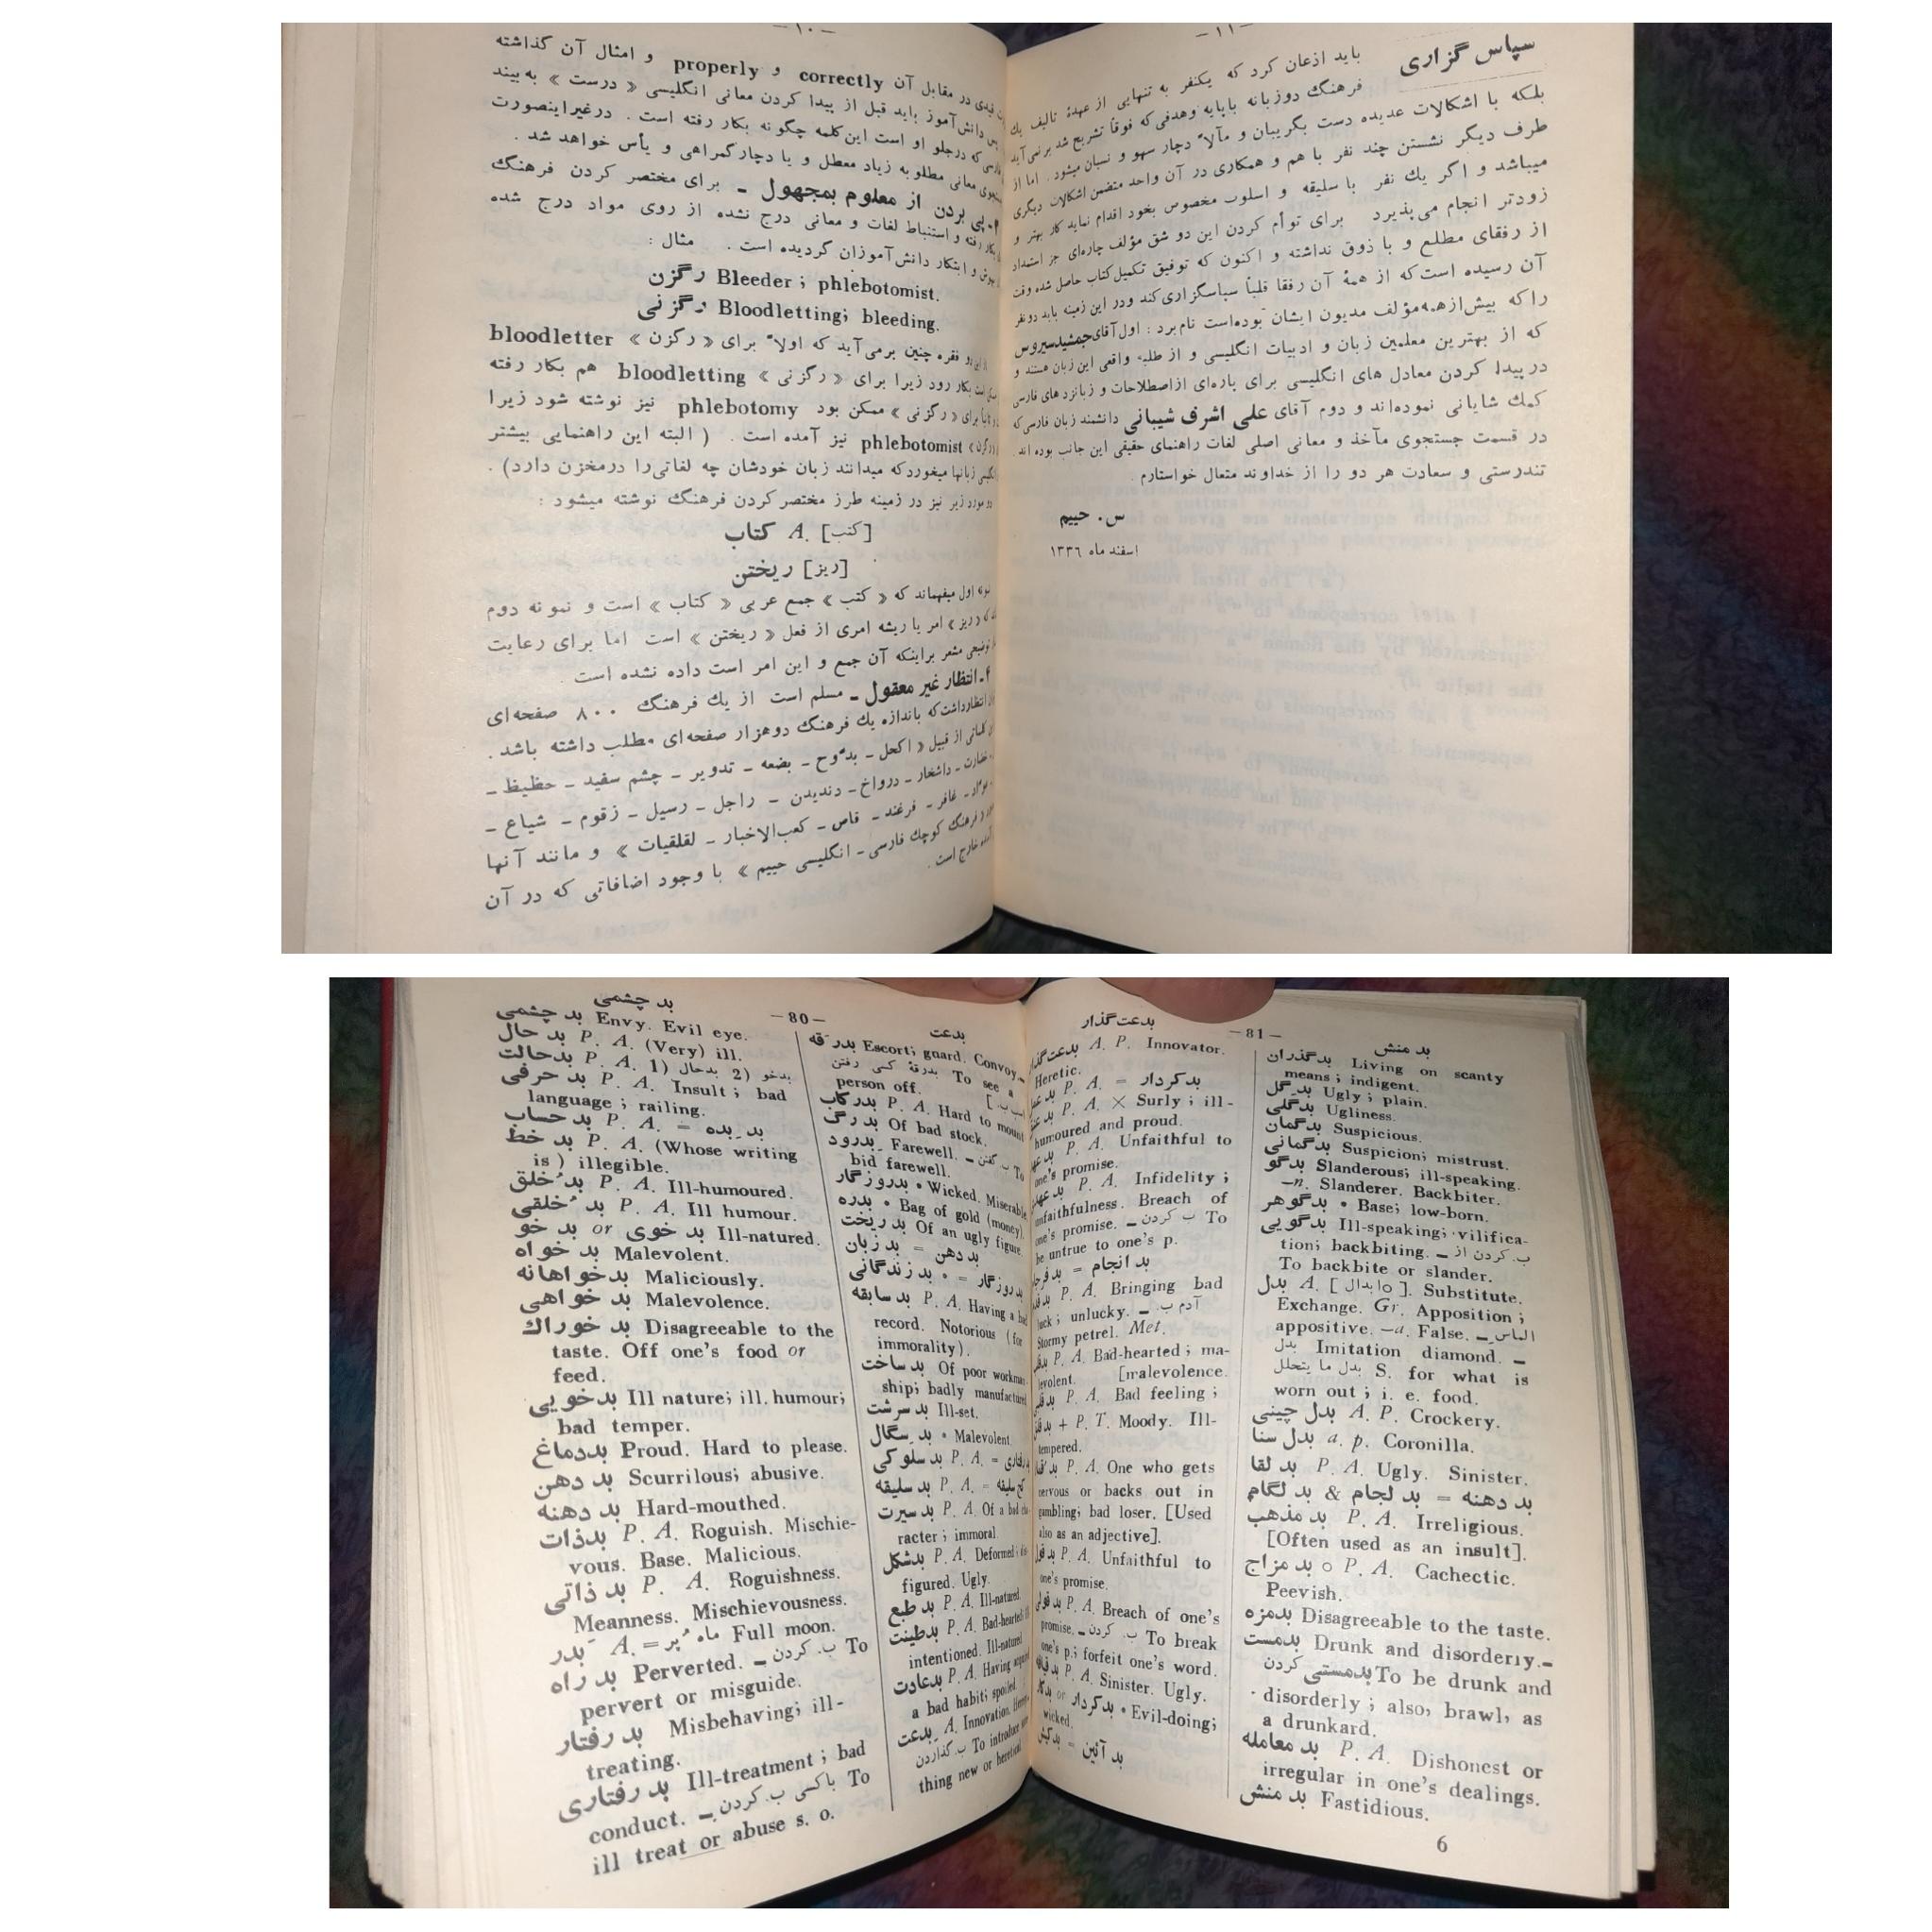 — ١٠ —
قیدی در مقابل آن correctly و properly و امثال آن گذاشته
دانش‌آموز باید قبل از پیدا کردن معانی انگلیسی « درست » به‌بیند
که درجلو او است این‌کلمه چگونه بکار رفته است . درغیراینصورت
معانی مطلوبه زیاد معطل و یا دچارگمراهی و یأس خواهد شد .
پی بردن از معلوم بمجهول ـ برای مختصر کردن فرهنگ
بکار رفته و استنباط لغات و معانی درج نشده از روی مواد درج شده
هوش و ابتکار دانش‌آموزان گردیده است . مثال :
رگزن Bleeder ; phlebotomist.
رگزنی Bloodletting; bleeding.
دو فقره چنین برمی‌آید که اولاً برای « رگزن » bloodletter
بکار رود زیرا برای « رگزنی » bloodletting هم بکار رفته
برای « رگزنی » ممکن بود phlebotomy نیز نوشته شود زیرا
phlebotomist نیز آمده است . ( البته این راهنمایی بیشتر
زبانها میخورد که میدانند زبان خودشان چه لغاتی‌را درمخزن دارد) .
دو مورد زیر نیز در زمینه طرز مختصر کردن فرهنگ نوشته میشود :
کتاب A. [کتب]
ریختن [ریز]
نمونه اول میفهماند که « کتب » جمع عربی « کتاب » است و نمونه دوم
که « ریز » امر یا ریشه امری از فعل « ریختن » است اما برای رعایت
توضیحی مشعر براینکه آن جمع و این امر است داده نشده است .
۴ـ انتظار غیر معقول ـ مسلم است از یك فرهنگ ٨٠٠ صفحه‌ای
انتظار داشت که باندازه یك فرهنگ دوهزار صفحه‌ای مطلب داشته باشد .
کلماتی از قبیل « اکحل ـ بدّوح ـ بضعه ـ تدویر ـ چشم سفید ـ حظیظ ـ
داشخار ـ درواخ ـ دندیدن ـ راجل ـ رسیل ـ زقوم ـ شیاع ـ
غافر ـ فرغند ـ قاص ـ کعب‌الاخبار ـ لقلقیات » و مانند آنها
فرهنگ کوچك فارسی ـ انگلیسی حییم » با وجود اضافاتی که در آن
خارج است .
— ١١ —
سپاس گزاری
باید اذعان کرد که یکنفر به تنهایی از عهدهٔ تالیف یك
فرهنگ دوزبانه باپایه وهدفی‌که فوقاً تشریح شد برنمی‌آید
بلکه با اشکالات عدیده دست بگریبان و مآلاً دچار سهو و نسیان میشود . اما از
طرف دیگر نشستن چند نفر با هم و همکاری در آن واحد متضمن اشکالات دیگری
میباشد و اگر یك نفر با سلیقه و اسلوب مخصوص بخود اقدام نماید کار بهتر و
زودتر انجام می‌پذیرد برای توأم کردن این دو شق مؤلف چاره‌ای جز استمداد
از رفقای مطلع و با ذوق نداشته و اکنون که توفیق تکمیل‌کتاب حاصل شده وقت
آن رسیده است‌که از همهٔ آن رفقا قلباً سپاسگزاری‌کند ودر این زمینه باید دونفر
را که بیش‌ازهمه‌مؤلف مدیون ایشان بوده‌است نام‌برد : اول‌آقای‌جمشیدسیروس
که از بهترین معلمین زبان و ادبیات انگلیسی و از طلبه واقعی این زبان هستند و
در پیدا کردن معادل های انگلیسی برای پاره‌ای ازاصطلاحات و زبانزد های فارسی
کمك شایانی نموده‌اند و دوم آقای علی اشرف شیبانی دانشمند زبان فارسی‌که
در قسمت جستجوی مآخذ و معانی اصلی لغات راهنمای حقیقی این جانب بوده اند .
تندرستی و سعادت هر دو را از خداوند متعال خواستارم .
س. حییم
اسفند ماه ١٣٣٦
بد چشمی
— 80 —
بدعت
بد چشمی Envy. Evil eye.
بد حال P. A. (Very) ill.
بدحالت P. A. 1) بدحال 2) بدخو
بد حرفی P. A. Insult ; bad
language ; railing.
بد حساب P. A. = بد بده
بد خط P. A. (Whose writing
is ) illegible.
بدخُلق P. A. Ill-humoured.
بدخُلقی P. A. Ill humour.
بد خو or بد خوی Ill-natured.
بد خواه Malevolent.
بدخواهانه Maliciously.
بد خواهی Malevolence.
بد خوراك Disagreeable to the
taste. Off one's food or
feed.
بدخویی Ill nature; ill. humour;
bad temper.
بددماغ Proud. Hard to please.
بد دهن Scurrilous; abusive.
بد دهنه Hard-mouthed.
بدذات P. A. Roguish. Mischie-
vous. Base. Malicious.
بد ذاتی P. A. Roguishness.
Meanness. Mischievousness.
بَدر A. = ماه پُر Full moon.
بد راه Perverted. ـ ب. کردن To
pervert or misguide.
بد رفتار Misbehaving; ill-
treating.
بد رفتاری Ill-treatment ; bad
conduct. ـ باکسی ب. کردن To
ill treat or abuse s. o.
بدرَقه Escort; guard. Convoy.ـ
بدرقهٔ کسی رفتن To see a
person off.
بدرکاب P. A. Hard to mount
بدرگ Of bad stock.
بدرود Farewell. ـ ب. گفتن To
bid farewell.
بدروزگار • Wicked. Miserable
بدره • Bag of gold (money).
بد ریخت Of an ugly figure.
بد زبان = بد دهن
بد زندگانی • = بد روزگار
بد سابقه P. A. Having a bad
record. Notorious (for
immorality).
بد ساخت Of poor workman-
ship; badly manufactured
بد سرشت Ill-set.
بد سگال • Malevolent.
بد سلوکی P. A. = بد رفتاری
بد سلیقه P. A. = کج سلیقه
بد سیرت P. A. Of a bad cha-
racter ; immoral.
بدشکل P. A. Deformed ; dis-
figured. Ugly.
بد طبع P. A. Ill-natured.
بدطینت P. A. Bad-hearted; ill-
intentioned. Ill-natured
بدعادت P. A. Having acquired
a bad habit; spoiled.
بدعت A. Innovation.
ب. گذاردن To introduce
thing new or heretical
بدعت گذار
— 81 —
بد منش
بدعت‌گذار A. P. Innovator.
Heretic.
P. A. = بدکردار
P. A. × Surly ; ill-
humoured and proud.
P. A. Unfaithful to
one's promise.
P. A. Infidelity ;
unfaithfulness. Breach of
one's promise. ـ ب کردن To
be untrue to one's p.
بد فرجام = بد انجام
P. A. Bringing bad
luck ; unlucky. ـ آدم ب.
Stormy petrel. Met.
P. A. Bad-hearted ; ma-
levolent. [malevolence.
P. A. Bad feeling ;
+ P. T. Moody. Ill-
tempered.
P. A. One who gets
nervous or backs out in
gambling; bad loser. [Used
also as an adjective].
بد قول P. A. Unfaithful to
one's promise.
بد قولی P. A. Breach of one's
promise. ـ ب. کردن To break
one's p.; forfeit one's word.
بد قیافه P. A. Sinister. Ugly.
بدکار or بدکردار • Evil-doing;
wicked.
بدکیش = بد آئین
بدگذران Living on scanty
means ; indigent.
بدگل Ugly ; plain.
بدگلی Ugliness.
بدگمان Suspicious.
بدگمانی Suspicion; mistrust.
بدگو Slanderous; ill-speaking.
—n. Slanderer. Backbiter.
بدگوهر • Base; low-born.
بدگویی Ill-speaking; vilifica-
tion; backbiting. ـ ب.کردن از
To backbite or slander.
بدل A. [ابدال o]. Substitute.
Exchange. Gr. Apposition ;
appositive. —a. False. ـ الماس
بدل Imitation diamond. ـ
بدل ما یتحلل S. for what is
worn out ; i. e. food.
بدل چینی A. P. Crockery.
بدل سنا a. p. Coronilla.
بد لقا P. A. Ugly. Sinister.
بد لگام & بد لجام = بد دهنه
بد مذهب P. A. Irreligious.
[Often used as an insult].
بد مزاج o P. A. Cachectic.
Peevish.
بدمزه Disagreeable to the taste.
بدمست Drunk and disorderly.ـ
بدمستی کردن To be drunk and
disorderly ; also, brawl, as
a drunkard.
بد معامله P. A. Dishonest or
irregular in one's dealings.
بد منش Fastidious.
6